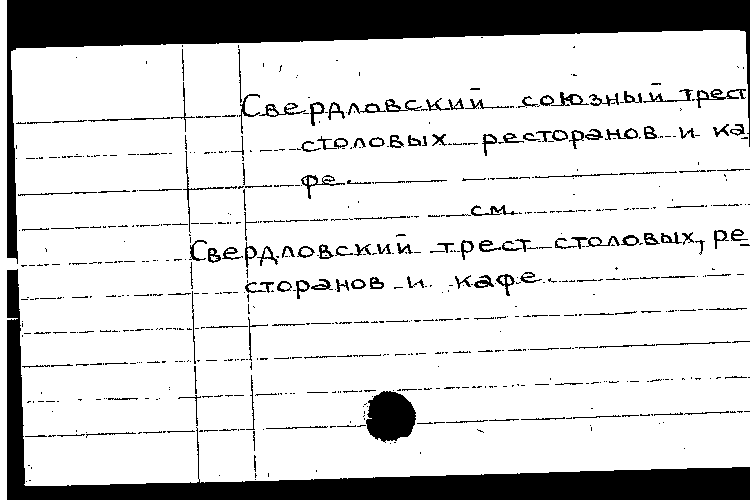 Свердловский союзный трест
столовых ресторанов и ка
фе.
см.
Свердловский трест столовых, ре
сторанов и кафе.